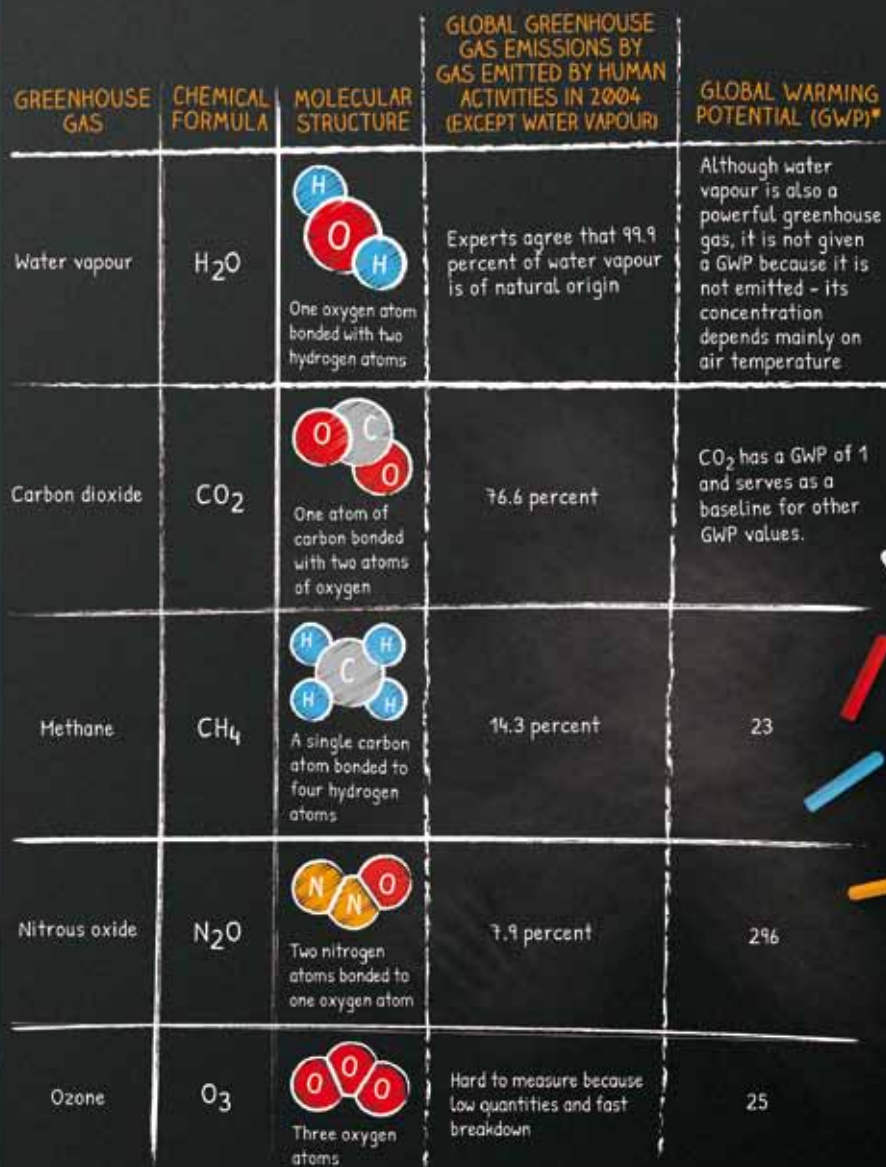 GREENHOUSE
GAS
CHEMICAL
FORMULA
MOLECULAR
STRUCTURE
GLOBAL GREENHOUSE
GAS EMISSIONS BY
GAS EMITTED BY HUMAN
ACTIVITIES IN 2004
(EXCEPT WATER VAPOUR)
GLOBAL WARMING
POTENTIAL (GWP)*
Water vapour
H₂O
H
O
H
One oxygen atom
bonded with two
hydrogen atoms
Experts agree that 99.9
percent of water vapour
is of natural origin
Although water
vapour is also a
powerful greenhouse
gas, it is not given
a GWP because it is
not emitted - its
concentration
depends mainly on
air temperature
Carbon dioxide
CO₂
O
C
O
One atom of
carbon bonded
with two atoms
of oxygen
76.6 percent
CO₂ has a GWP of 1
and serves as a
baseline for other
GWP values.
Methane
CH₄
H
H
C
H
H
A single carbon
atom bonded to
four hydrogen
atoms
14.3 percent
23
Nitrous oxide
N₂O
N
N
O
Two nitrogen
atoms bonded to
one oxygen atom
7.9 percent
296
Ozone
O₃
O
O
O
Three oxygen
atoms
Hard to measure because
low quantities and fast
breakdown
25